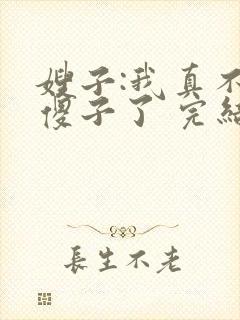 嫂子:我真不
傻子了 完结
長生不老